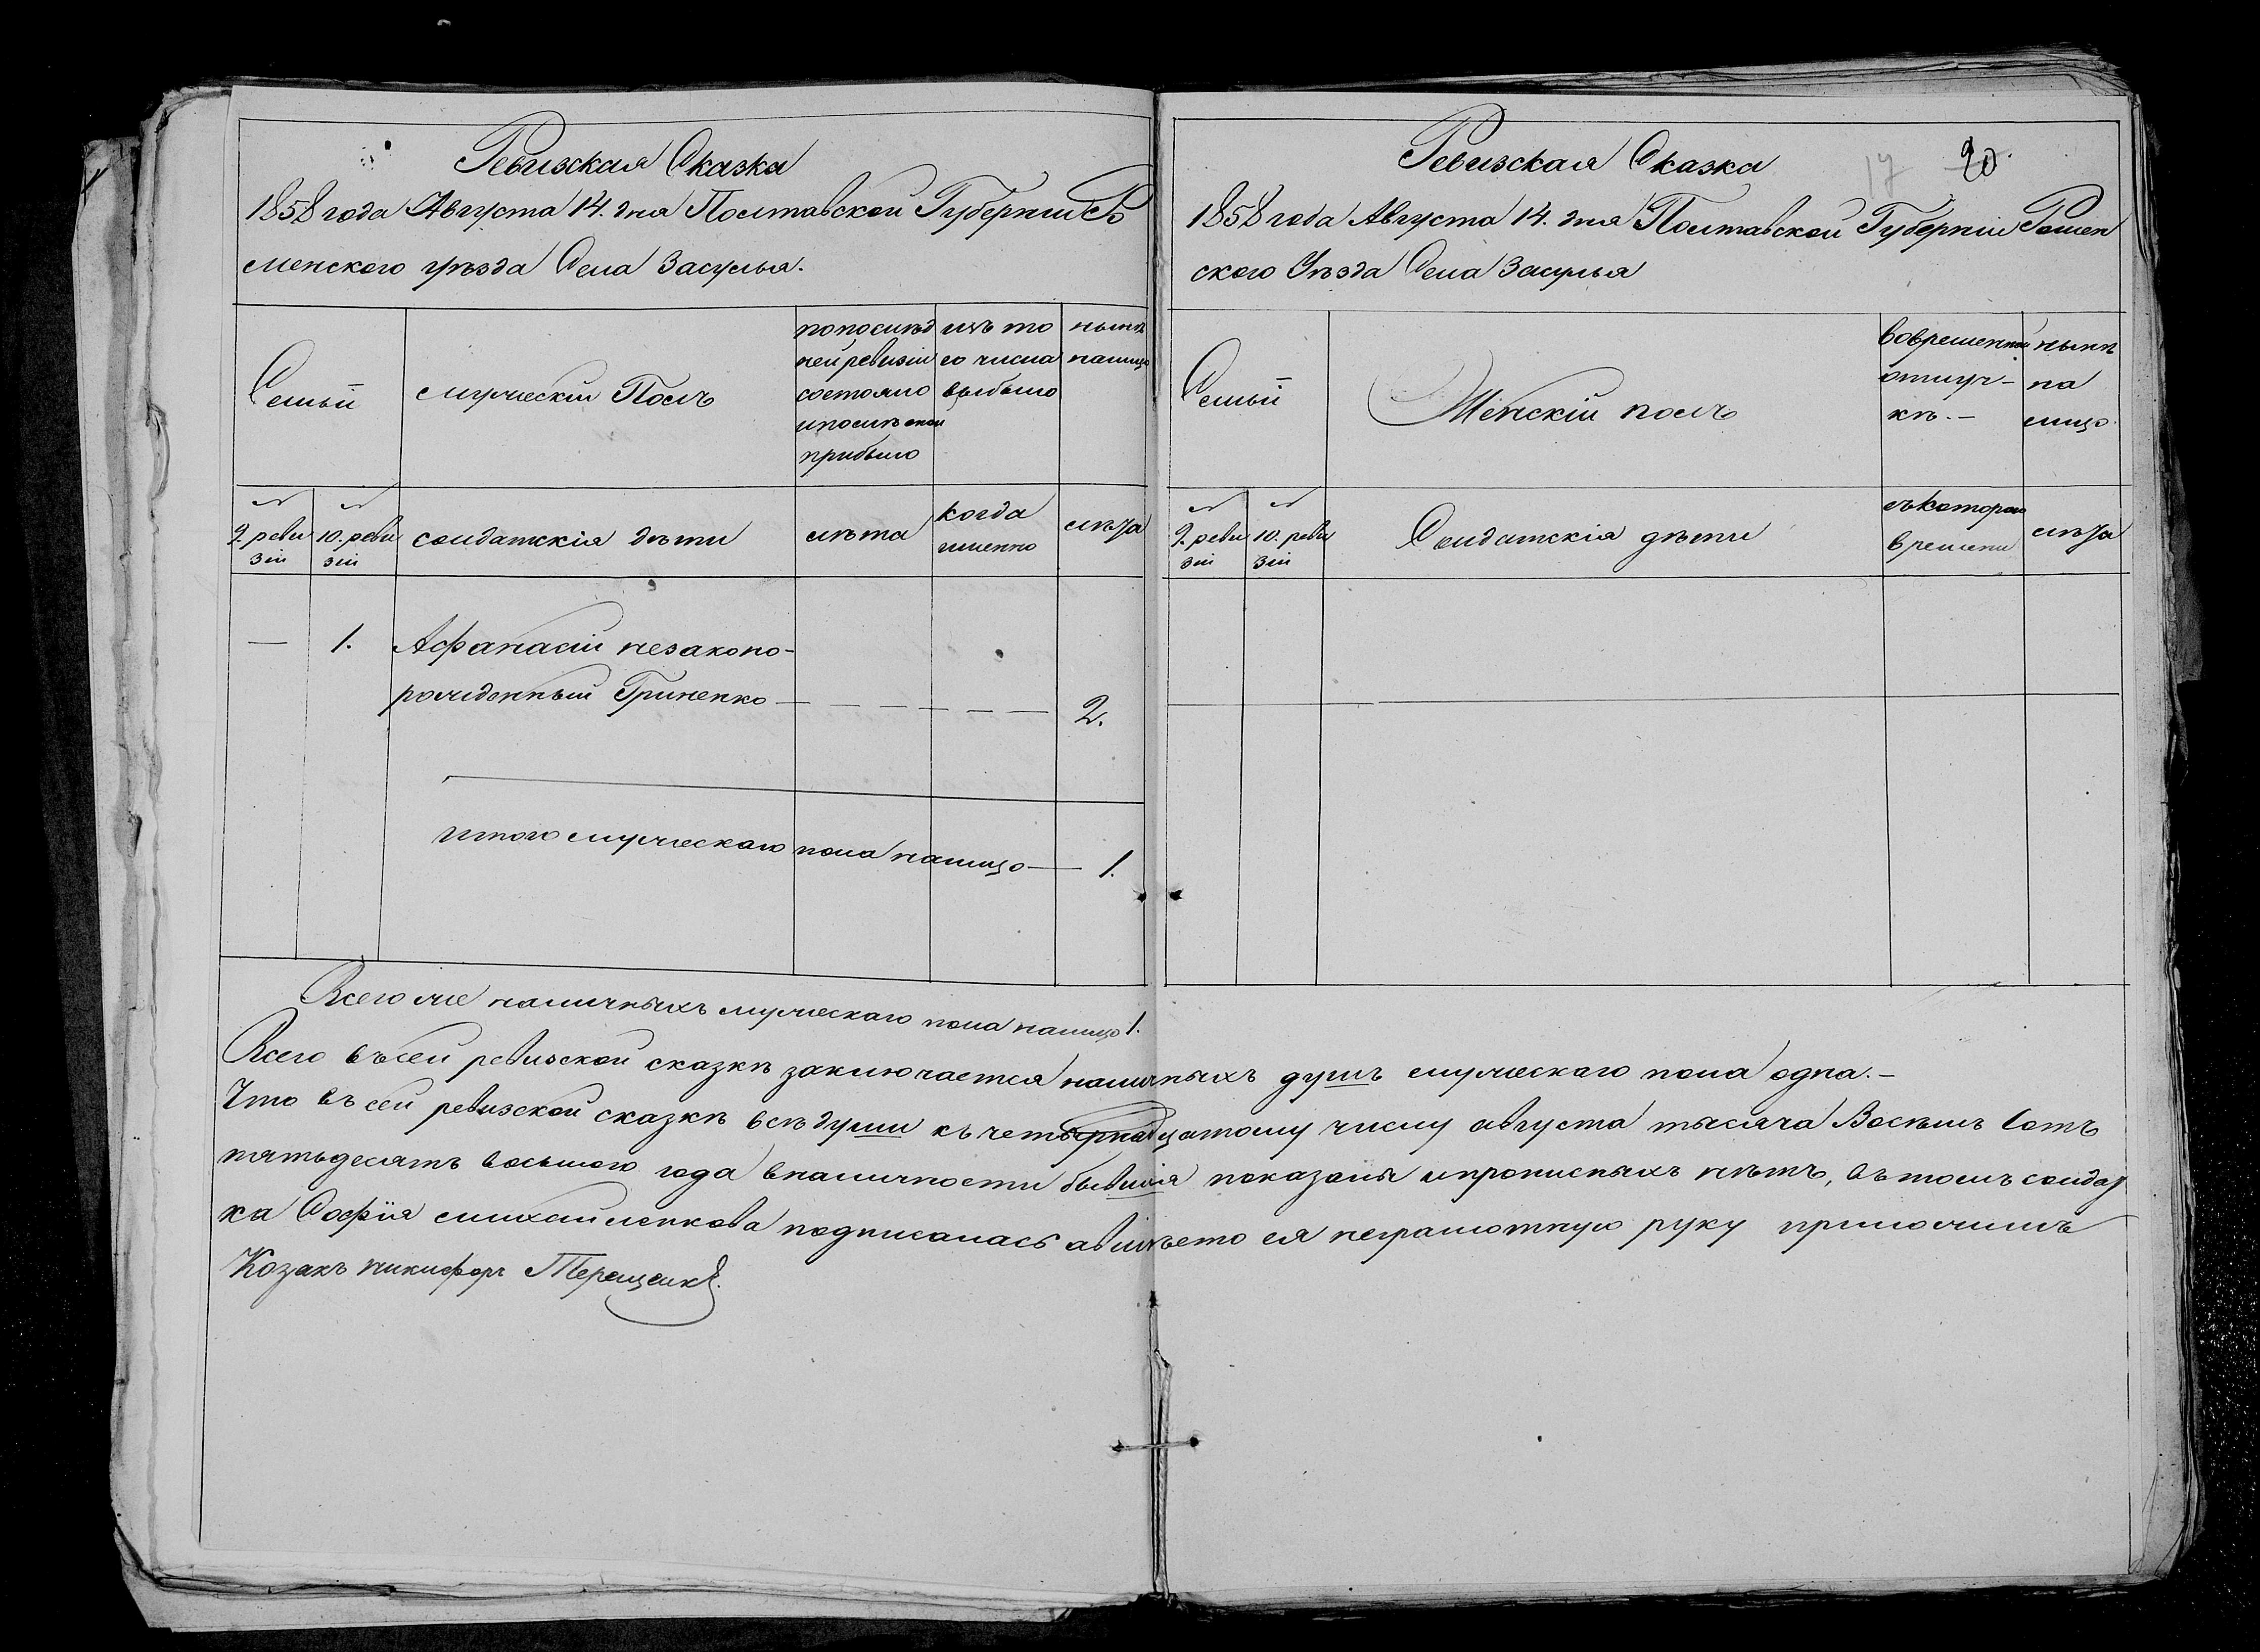 Ревизская Сказка
1858 года Августа 14. дня Полтавской Губернии Ро
менского уѣзда Села Засулья.
Семьи
мужескій Полъ
по послѣд
ней ревизіи
состояло
и послѣ оной
прибыло
изъ то
го числа
выбыло
нынѣ
налицо
№
9. реви
зіи
№
10. реви
зіи
солдатскія дѣти
лѣта
когда
именно
лѣта
— 1. Афанасій незаконо-
рожденный Гриненко — — — — — — 2.
итого мужескаго пола налицо — 1.
Всего же наличныхъ мужескаго пола налицо 1.
Ревизская Сказка
17 20.
1858 года Августа 14. дня Полтавской Губерніи Ромен
ского Уѣзда Села Засулья
Семьи
Женскій полъ
во временной
отлуч-
кѣ.-
нынѣ
на
лицо.
№
9. реви
зіи
№
10. реви
зіи
Солдатскія дѣти
съ котораго
времени
лѣта
Всего въ сей ревизской сказкѣ заключается наличныхъ душъ мужескаго пола одна.-
Что въ сей ревизской сказкѣ всѣ души къ четырнадцатому числу августа тысяча Восемь Сотъ
пятьдесятъ восьмого года в наличности бывшія показаны и прописныхъ нѣтъ, въ томъ солдат
ка Софія михайленкова подписалась а вмѣсто ея неграмотную руку приложилъ
Козакъ никифоръ Терещенко.